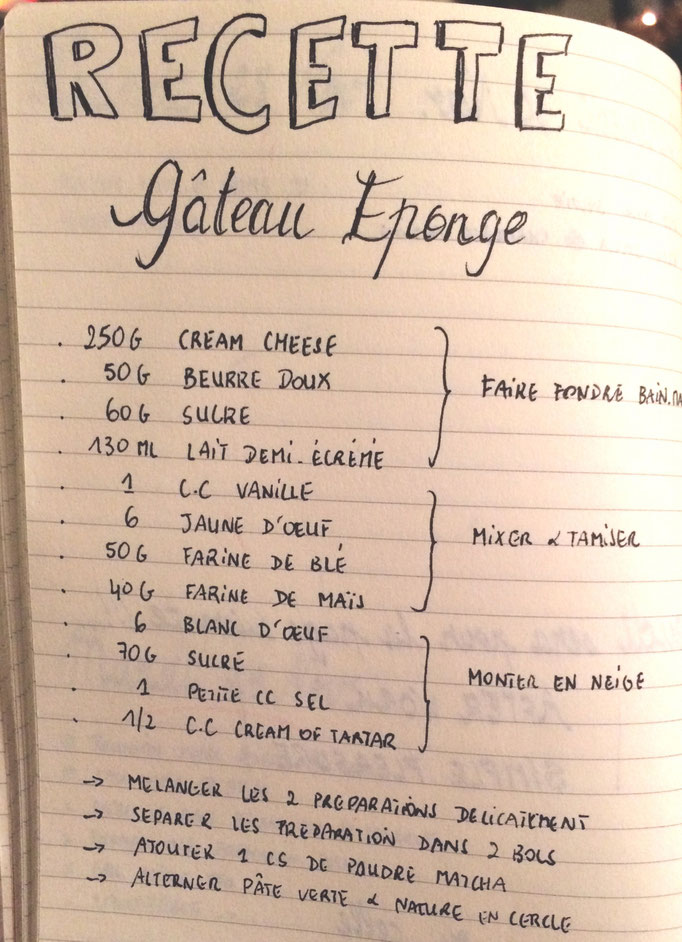 RECETTE
Gâteau Eponge
. 250G CREAM CHEESE
. 50G BEURRE DOUX
. 60G SUCRE
. 130ML LAIT DEMI-ÉCRÉMÉ
FAIRE FONDRE BAIN.MA
. 1 C.C VANILLE
. 6 JAUNE D'OEUF
. 50G FARINE DE BLÉ
. 40G FARINE DE MAÏS
MIXER & TAMISER
. 6 BLANC D'OEUF
. 70G SUCRE
. 1 PETITE CC SEL
. 1/2 C.C CREAM OF TARTAR
MONTER EN NEIGE
→ MELANGER LES 2 PREPARATIONS DELICATEMENT
→ SEPARER LES PREPARATION DANS 2 BOLS
→ AJOUTER 1 CS DE POUDRE MATCHA
→ ALTERNER PÂTE VERTE & NATURE EN CERCLE